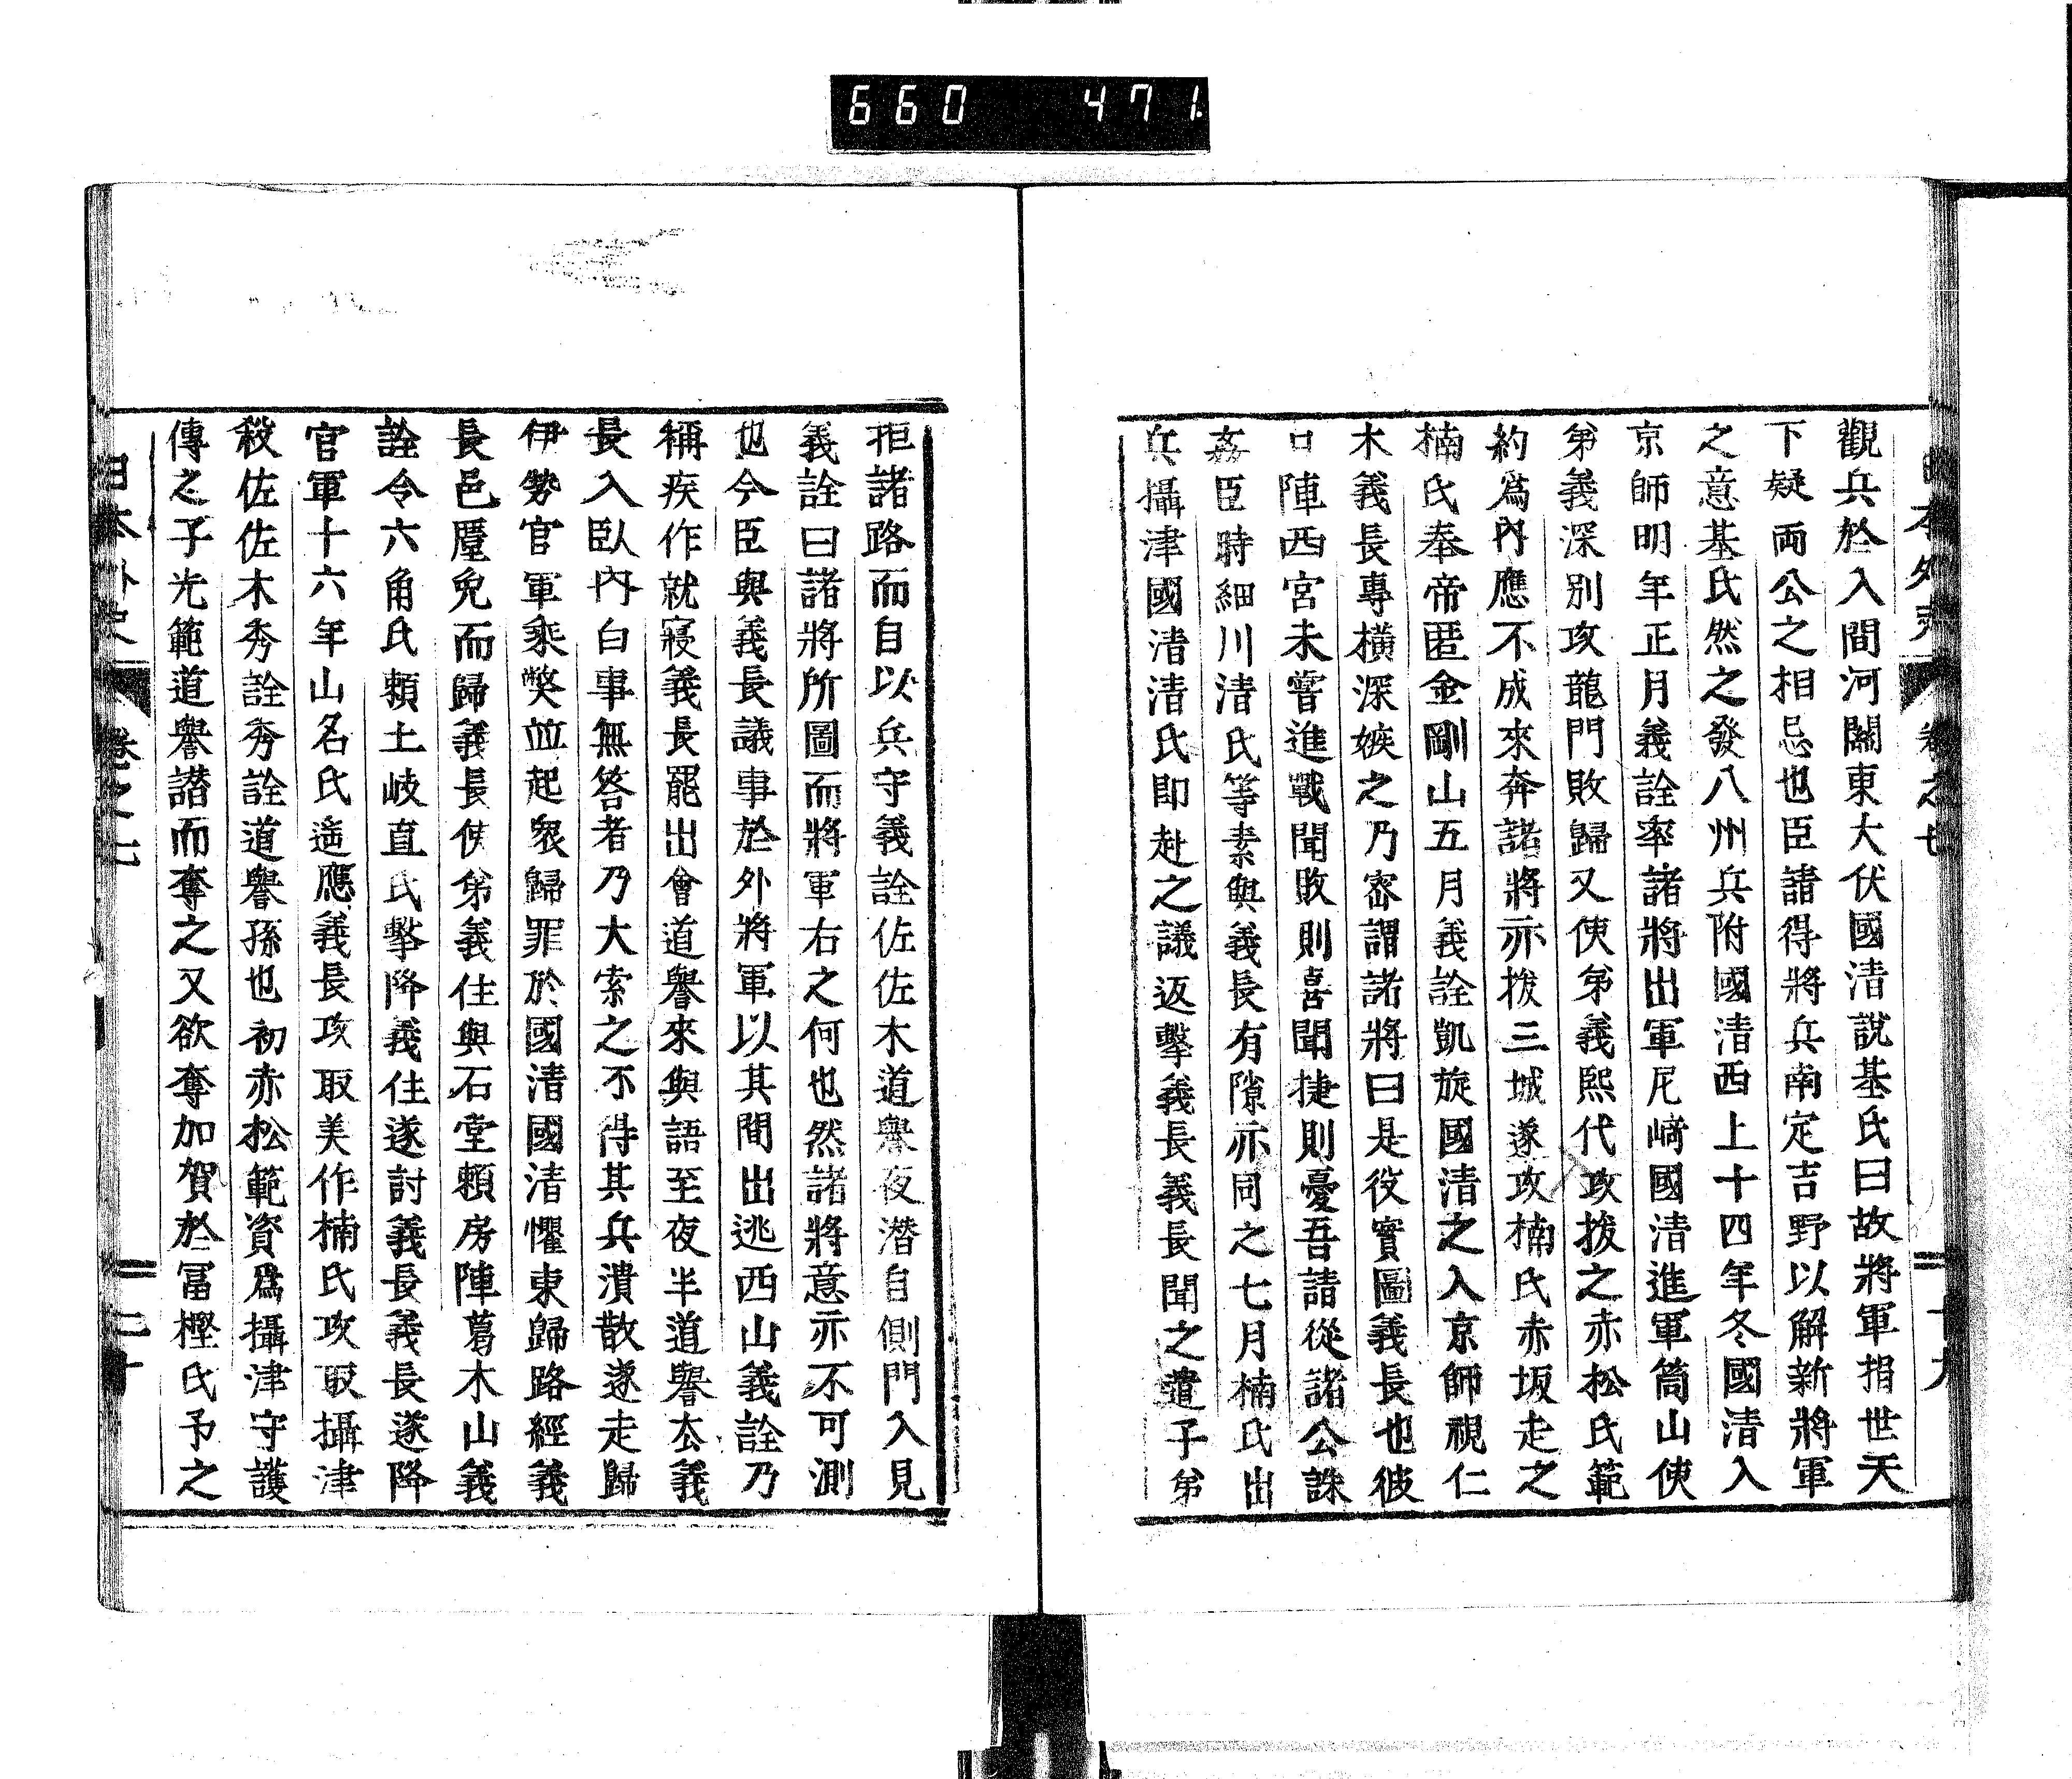 660 471
日本外史 卷之七 十九
觀兵於入間河關東大伏國清説基氏曰故將軍捐世天
下疑両公之相忌也臣請得將兵南定吉野以解新將軍
之意基氏然之發八州兵附國清西上十四年冬國清入
京師明年正月義詮率諸將出軍尼﨑國清進軍筒山使
弟義深別攻龍門敗歸又使弟義熙代攻拔之赤松氏範
約爲內應不成來奔諸將亦拔三城遂攻楠氏赤坂走之
楠氏奉帝匿金剛山五月義詮凱旋國清之入京師視仁
木義長專橫深嫉之乃密謂諸將曰是役實圖義長也彼
口陣西宮未嘗進戰聞敗則喜聞捷則憂吾請從諸公誅
姦臣時細川清氏等素與義長有隙亦同之七月楠氏出
兵攝津國清清氏即赴之議返擊義長義長聞之遣子弟
拒諸路而自以兵守義詮佐佐木道譽夜潛自側門入見
義詮曰諸將所圖而將軍右之何也然諸將意亦不可測
也今臣與義長議事於外將軍以其間出逃西山義詮乃
稱疾作就寢義長罷出會道譽來與語至夜半道譽去義
長入臥內白事無答者乃大索之不得其兵潰散遂走歸
伊勢官軍乘獘並起衆歸罪於國清國清懼東歸路經義
長邑廑免而歸義長使弟義住與石堂頼房陣葛木山義
詮令六角氏頼土岐直氏擊降義住遂討義長義長遂降
官軍十六年山名氏遥應義長攻取美作楠氏攻取攝津
殺佐佐木秀詮秀詮道譽孫也初赤松範資爲攝津守護
傳之子光範道譽譖而奪之又欲奪加賀於冨樫氏予之
日本外史 卷之七 二十